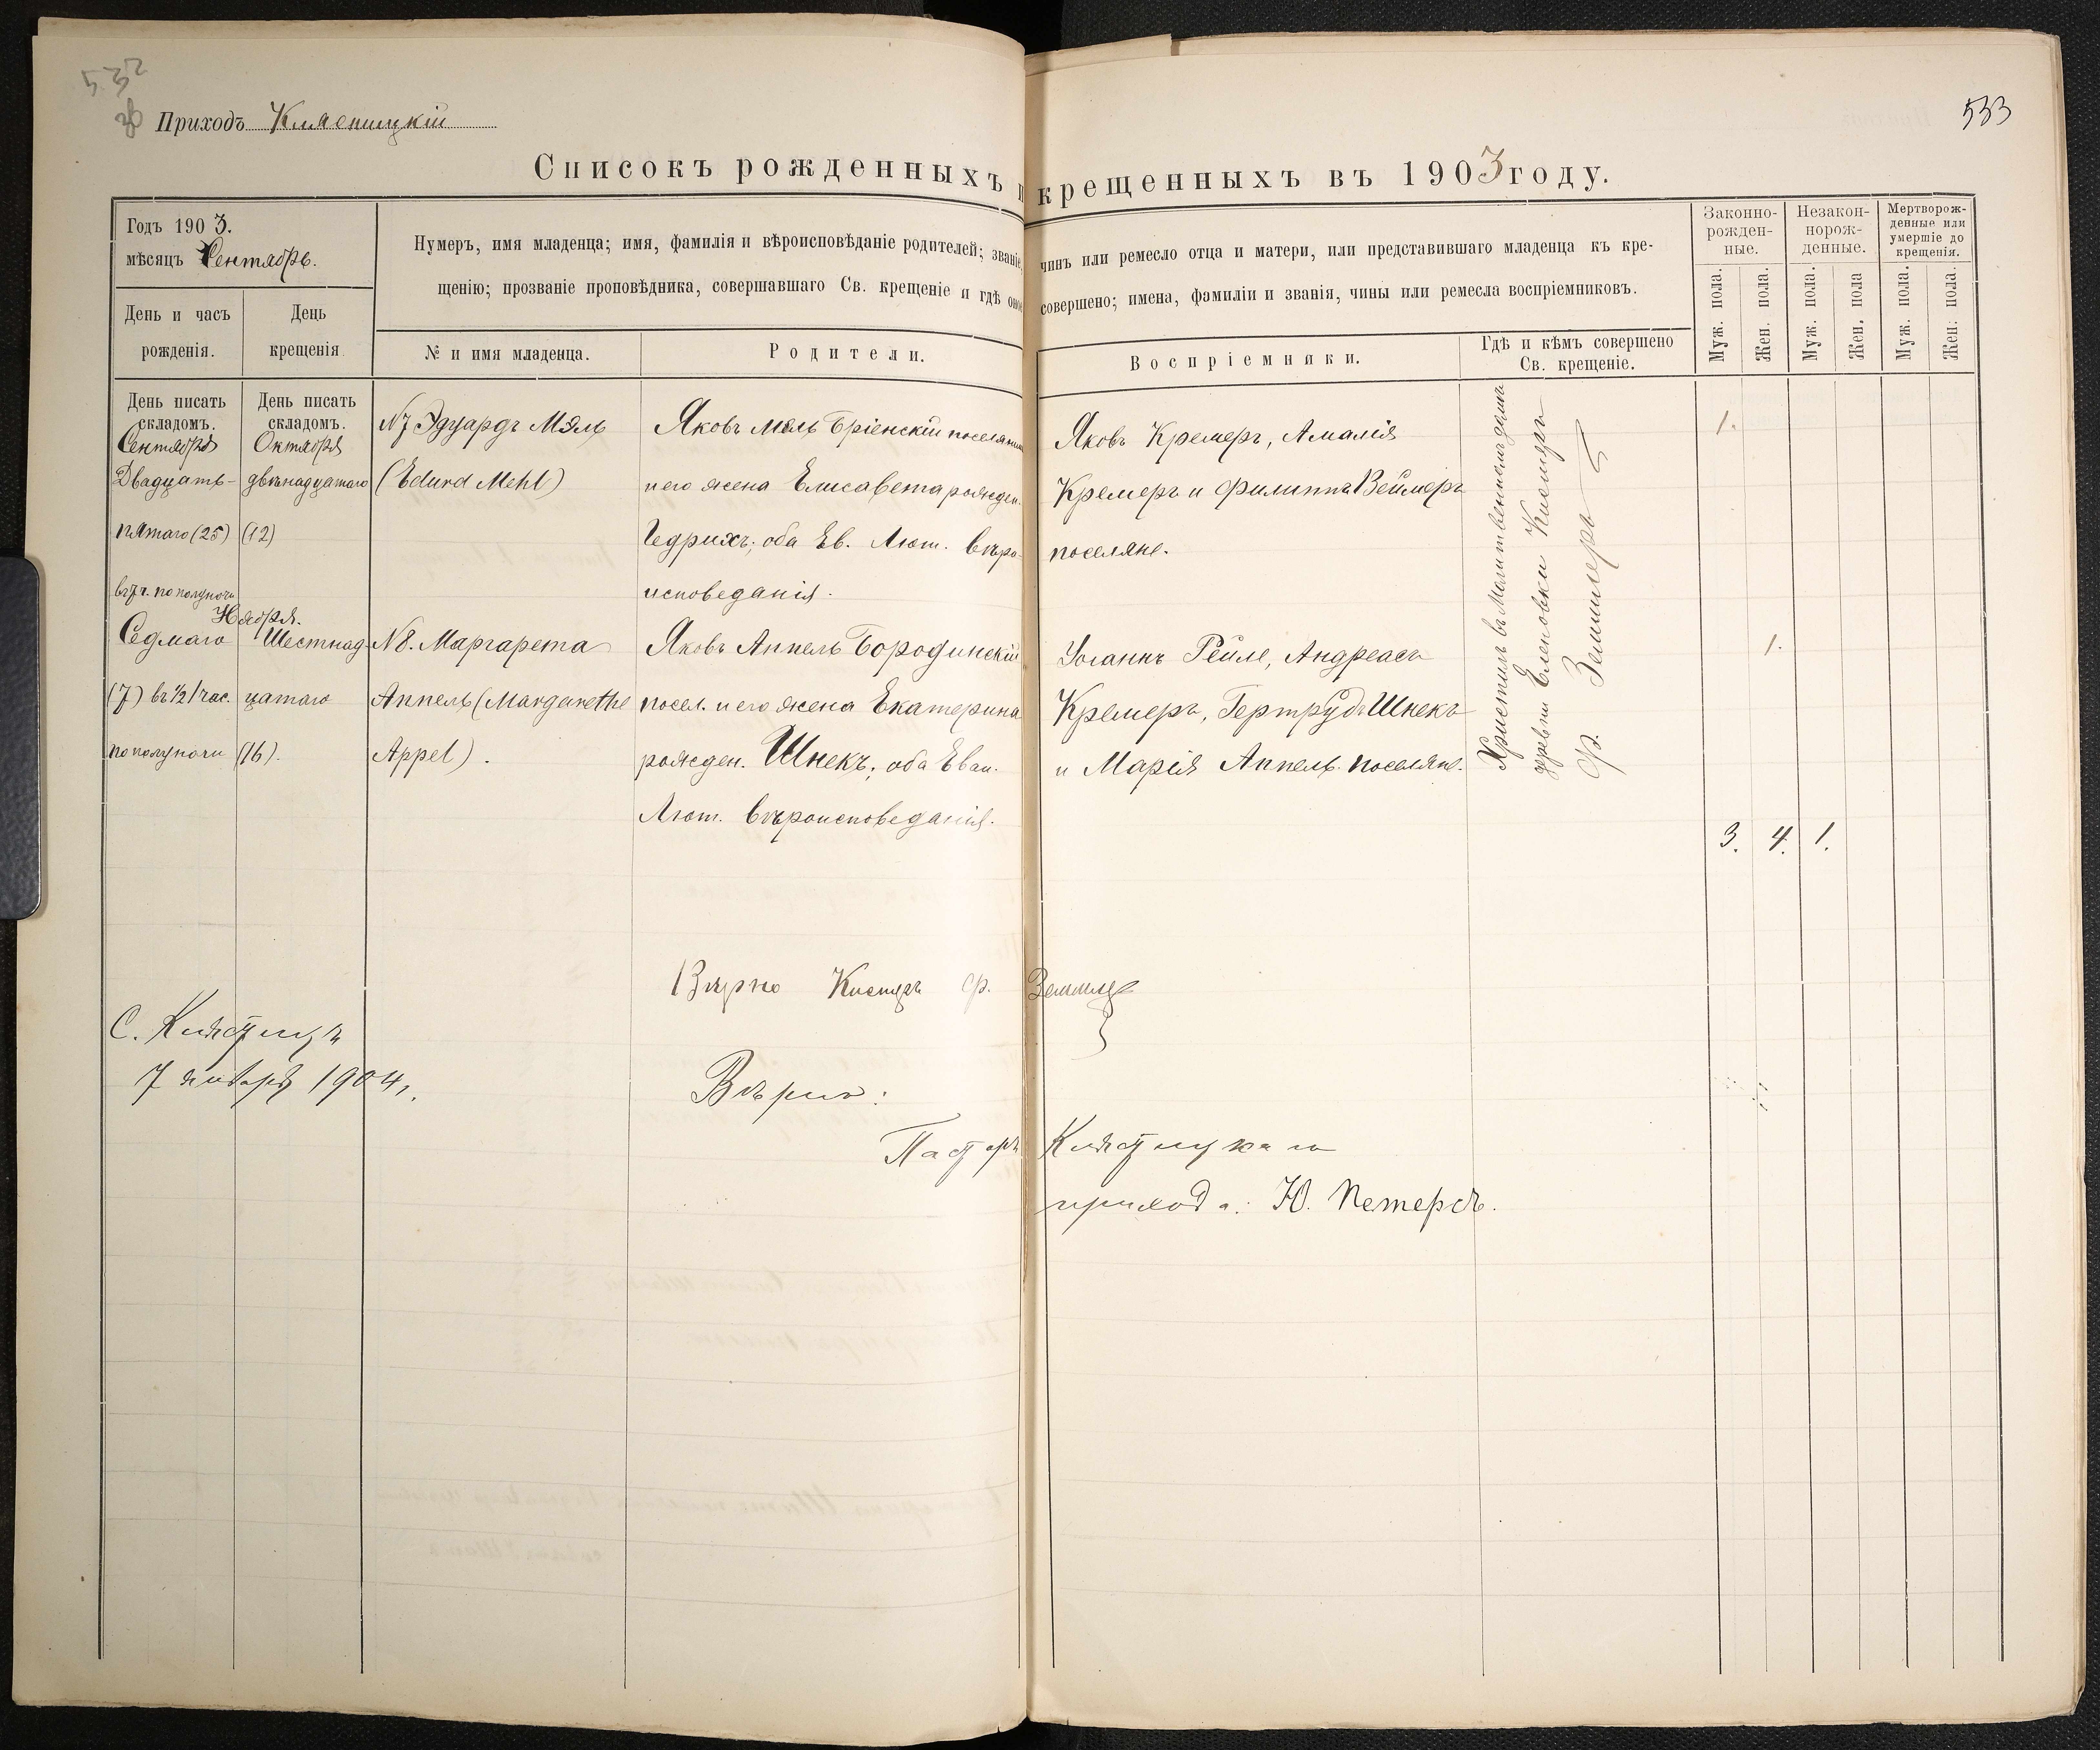 532
Приходъ Клястицкій
533
Списокъ рожденныхъ и крещенныхъ въ 1903 году.
Годъ 1903.
мѣсяцъ Сентябрь.
Нумеръ, имя младенца; имя, фамилія и вѣроисповѣданіе родителей; званіе, чинъ или ремесло отца и матери, или представившаго младенца къ кре-
щенію; прозваніе проповѣдника, совершавшаго Св. крещеніе и гдѣ оное совершено; имена, фамиліи и званія, чины или ремесла воспріемниковъ.
Законно-
рожден-
ные.
Незакон-
норож-
денные.
Мертворож-
денные или
умершіе до
крещенія.
День и часъ
рожденія.
День
крещенія
№ и имя младенца.
Родители.
Воспріемники.
Гдѣ и кѣмъ совершено
Св. крещеніе.
Муж. пола.
Жен. пола.
Муж. пола.
Жен. пола
Муж. пола.
Жен. пола.
День писать
складомъ.
Сентября
Двадцать-
пятаго (25)
въ 7 ч. по полуночи
День писать
складомъ.
Октября
двѣнадцатаго
(12)
N7 Эдуардъ Мэль
(Edurd Mehl)
Яковъ Мэль Бріенскій поселянинъ
и его жена Елисавета рожден.
Гедрихъ; оба Ев. Лют. вѣро-
исповеданія.
Яковъ Кремеръ, Амалія
Кремеръ и Филиппъ Веймеръ
поселяне.
1.
Ноября.
Седмаго
(7) въ ½ 1 час.
по полуночи
Шестнад-
цатаго
(16).
N8. Маргарета
Аппель (Margarethe
Appel).
Яковъ Аппель Бородинскій
посел. и его жена Екатерина
рожден. Шнекъ; оба Еван.
Лют. вѣроисповеданія.
Іоганнъ Рейле, Андреасъ
Кремеръ, Гертрудъ Шнекъ
и Марія Аппель. поселяне.
1.
Христилъ въ Молитвенномъ домѣ
деревни Еленовки Кистеръ
Ф. Земмлеръ
3. 4. 1.
Вѣрно Кистеръ Ф. Земмлеръ
С. Клястицъ
7 января 1904 г.
Вѣрно:
Пасторъ Клястицкаго
прихода: Ю. Петерсъ.